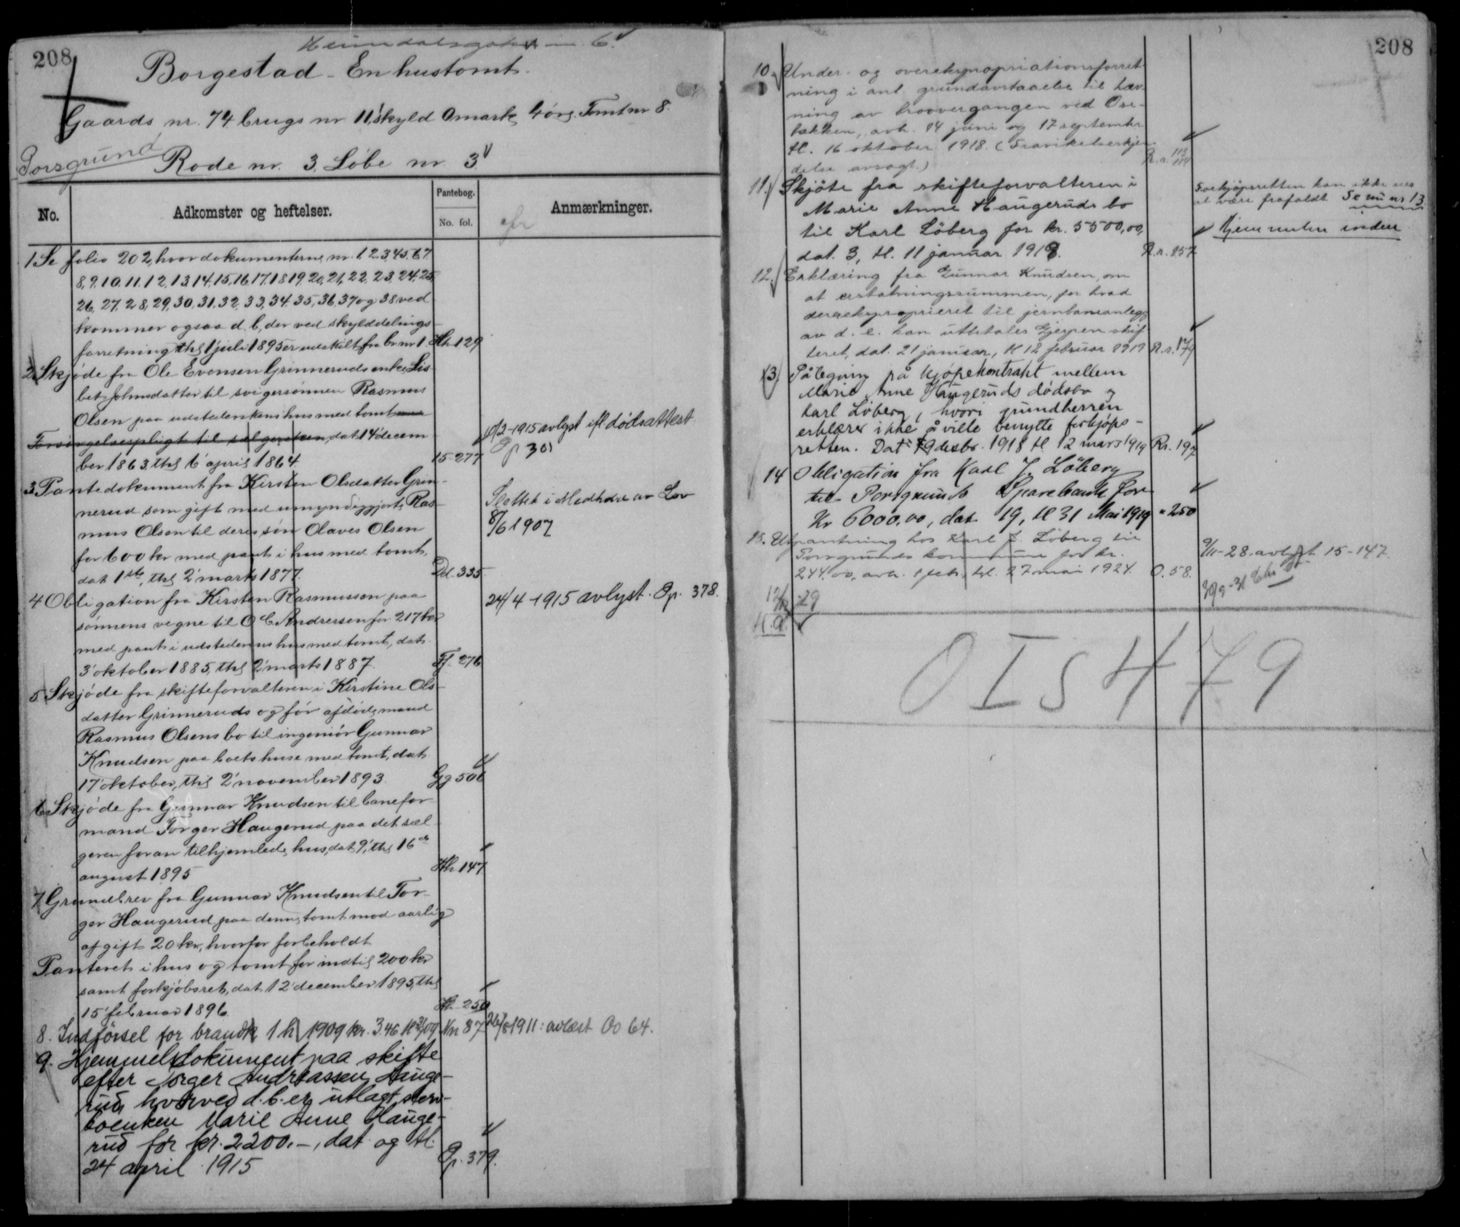 208
Heimdalsgaten 6
Borgestad - En hustomt.
Gaards nr. 74 brugs nr 11, skyld 0 mark 4 øre. Tomt nr 8.
Porsgrund
Rode nr. 3. Løbe nr. 3
No.
Adkomster og heftelser.
Pantebog.
No. fol.
Anmærkninger.
1. Se folio 202, hvor dokumenterne nr. 1 2 3 4 5 6 7
8, 9, 10, 11, 12, 13, 14, 15, 16, 17, 18 19 20, 21, 22, 23, 24, 25
26, 27, 28, 29, 30, 31, 32, 33, 34 35, 36 37 og 38 ved
kommer ogsaa d. b, der ved skylddelings
forretning thl 1 juli 1895 er udskilt fra br. nr 1. Hh 129
2. Skjøde fra Ole Evensen Grinneruds enke Lis
bet Johnsdatter til svigersønnen Rasmus
Olsen paa udstederskens hus med tomt
Forsørgelsespligt til sælgersken, dat 14 decem-
ber 1863 thl 6 april 1864 15-277
1915 avlyst efl dødsattest
Op 301
3. Pantedokument fra Kirsten Olsdatter Grin-
nerud som gift med umyndiggjort Ras-
mus Olsen til deres søn Olaves Olsen
for 600 kr med pant i hus med tomt,
dat 1ste, thl 2 marts 1877. Dd. 335
Slettet i Medhold av Lov
8/6 1907
4 Obligation fra Kirsten Rasmussen paa
sønnens vegne til O C Andressen for 217 kr
med pant i udstederens hus med tomt, dat
3 oktober 1885, thl 2 marts 1887. Ff. 276
24/4 - 1915 avlyst. Op. 378.
5 Skjøde fra skifteforvalteren i Kirstine Ols-
datter Grinneruds og før afdøde mand
Rasmus Olsens bo til ingeniør Gunnar
Knudsen paa boets huse med tomt, dat
17 oktober, thl 2 november 1893. Gg 506
6 Skjøde fra Gunnar Knudsen til banefor
mand Torger Haugerud paa det sæl-
geren foran tilhjemlede hus, dat 9, thl 16de
august 1895 Hh 147
7. Grundbrev fra Gunnar Knudsen til Tor-
ger Haugerud paa denne tomt mod aarlig
afgift 20 kr, hvorfor forbeholdt
Panteret i hus og tomt for indtil 200 kr
samt forkjøbsret, dat 12 december 1895, thl
15 februar 1896 Hh 250
8. Indførsel for brandk 1 h 1909 kr. 3.46 Nn 87 1911: avlæst Oo 64.
9. Hjemmelsdokument paa skifte
efter Torger Andreassen Hauge-
rud, hvorved d. b. er utlagt sterv-
boenken Marie Anne Hauge-
rud for kr. 2200.-, dat og tl.
24 april 1915 Op. 379.
208
10. Under- og overekspropriationsforret
ning i anl. grundavstaaelse til hæv-
ning av broovergangen ved Ose-
bakken, avh. 14 juni og 17 septembr
tl. 16 oktober 1918. (Fravikelseskjen
delse avsagt.)
11. Skjøte fra skifteforvalteren i
Marie Anne Haugeruds bo
til Karl Løberg for kr. 5500,00,
dat 3, tl. 11 januar 1919. R.r. 157
Forkjøpsretten kan ikke sees
at være frafaldt Se nu nr 13
Hjemmelen i orden
12. Erklæring fra Gunnar Knudsen om
at erstatningssummen, for hvad
der eksproprieret til jernbaneanlegg
av d. e. kan uttetales Gjerpen skif
teret, dat. 21 januar, tl 12 februar 1919 R.r. 174
13. Påtegning på kjøpekontrakt mellem
Marie Anne Haugeruds dødsbo og
Karl Løberg, hvori grundherren
erklærer ikke å ville benytte forkjøps-
retten. Dat 19 desbr. 1918 tl 12 mars 1919 Rr. 197
14 Obligation fra Karl J. Løberg
til Porsgrunds Sparebank for
Kr 6000,00, dat 19, tl 31 Mai 1919 " 250
15. Utpantning hos Karl J. Løberg til
Porsgrunds kommune for kr.
244.00, avh. 1 feb., tl. 27 mai 1924. O. 58.
28. avlyst 15-147
29
OIS 479